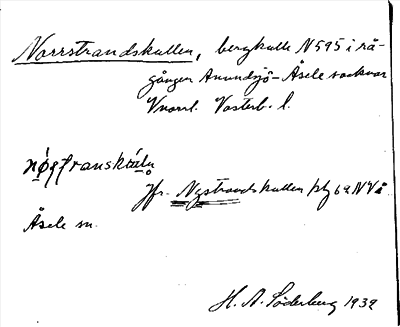 Norrstrandskullen, bergkulle N 595 i rå-
gången Anundsjö - Åsele socknar
Vnorrl. Västerb. l.
Jfr. Nystrandskullen på 62 NV i
Åsele sn.
H. A. Söderberg 1939